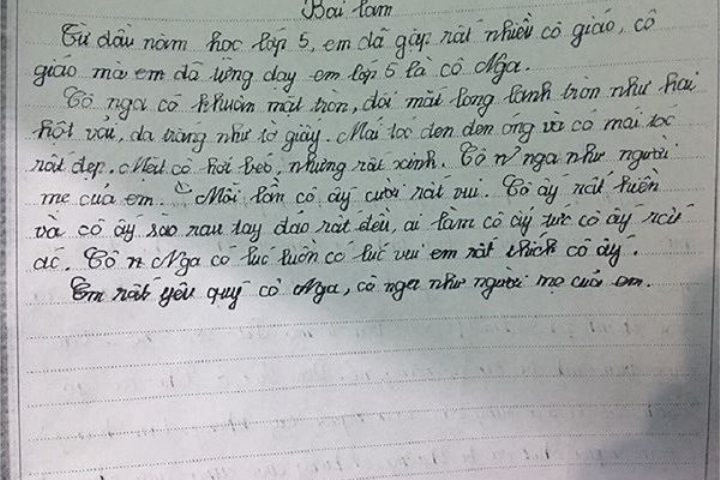 Bài làm
Từ đầu năm học lớp 5, em đã gặp rất nhiều cô giáo, cô
giáo mà em đã từng dạy em lớp 5 là cô Nga.
Cô nga có khuân mặt tròn, đôi mắt long lanh tròn như hai
hột vải, da trắng như tờ giấy. Mái tóc đen đen óng và có mái tóc
rất đẹp. Mặt cô hơi béo, nhưng rất xinh. Cô n nga như người
mẹ của em. Mỗi lần cô ấy cười rất vui. Cô ấy rất hiền
và cô ấy sào rau tay đảo rất đều, ai làm cô ấy tức cô ấy rất
ác. Cô n Nga có lúc luồn có lúc vui em rất thích cô ấy.
Em rất yêu quý cô Nga, cô nga như người mẹ của em.